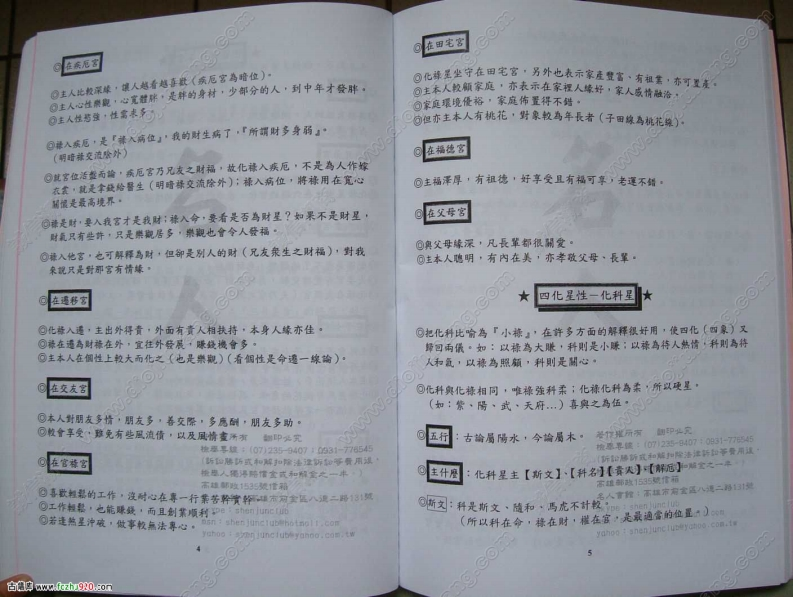 ◎在疾厄宮
◎主人比較深緣，讓人越看越喜歡（疾厄宮為暗位）。
◎主人心性樂觀，心寬體胖。是胖的身材，少部分的人，到中年才發胖。
◎主人性慾強，性需求多。
◎祿入疾厄，是『祿入病位』，我的財生病了，『所謂財多身弱』。
（明暗祿交流除外）
◎就宮位活盤而論，疾厄宮乃兄友之財福，故化祿入疾厄，不是為人作嫁
衣裳，就是拿錢給醫生（明暗祿交流除外）；祿入病位，將祿用在寬心
關懷是最高境界。
◎祿是財，要入我宮才是我財；祿入命，要看是否為財星？如果不是財星，
財氣只有些許，只是樂觀居多，樂觀也會令人發福。
◎祿入他宮，也可解釋為財，但卻是別人的財（兄友眾生之財福），對我
來說只是對那宮有情緣。
◎在遷移宮
◎化祿入遷，主出外得貴，外面有貴人相扶持，本身人緣亦佳。
◎祿在遷為財祿在外，宜往外發展，賺錢機會多。
◎主本人在個性上較大而化之（也是樂觀）（看個性是命遷一線論）。
◎在交友宮
◎本人對朋友多情，朋友多，善交際，多應酬，朋友多助。
◎較會享受、難免有些風流債，以及風情畫
◎在官祿宮
◎喜歡輕鬆的工作，沒耐心在專一行業苦幹實幹。
◎工作輕鬆，也能賺錢，而且創業順利。
◎若逢煞星沖破，做事較無法專心。
4
◎在田宅宮
◎化祿星坐守在田宅宮，另外也表示家產豐富，有祖業，亦可置產。
◎主本人較顧家庭，亦表示在家裡人緣好，家人感情融洽。
◎家庭環境優裕，家庭佈置得不錯。
◎但亦主本人有桃花，對象較為年長者（子田線為桃花線）。
◎在福德宮
◎主福澤厚，有祖德，好享受且有福可享，老運不錯。
◎在父母宮
◎與父母緣深，凡長輩都很關愛。
◎主本人聰明，有內在美，亦孝敬父母、長輩。
★四化星性－化科星★
◎把化科比喻為『小祿』，在許多方面的解釋很好用，使四化（四象）又
歸回兩儀。如：以祿為大賺，科則是小賺；以祿為待人熱情，科則為待
人和氣，以祿為照顧，科則是關心。
◎化科與化祿相同，唯祿強科柔；化祿化科為柔，所以硬星，
（如：紫、陽、武、天府…）喜與之為伍。
◎五行：古論屬陽水，今論屬木。
◎主什麼：化科星主【斯文】、【科名】、【貴人】、【解厄】
◎斯文：科是斯文、隨和、馬虎不計較。
（所以科在命，祿在財，權在官，是最適當的位置。）
5
古籍库 www.fczhu920.com